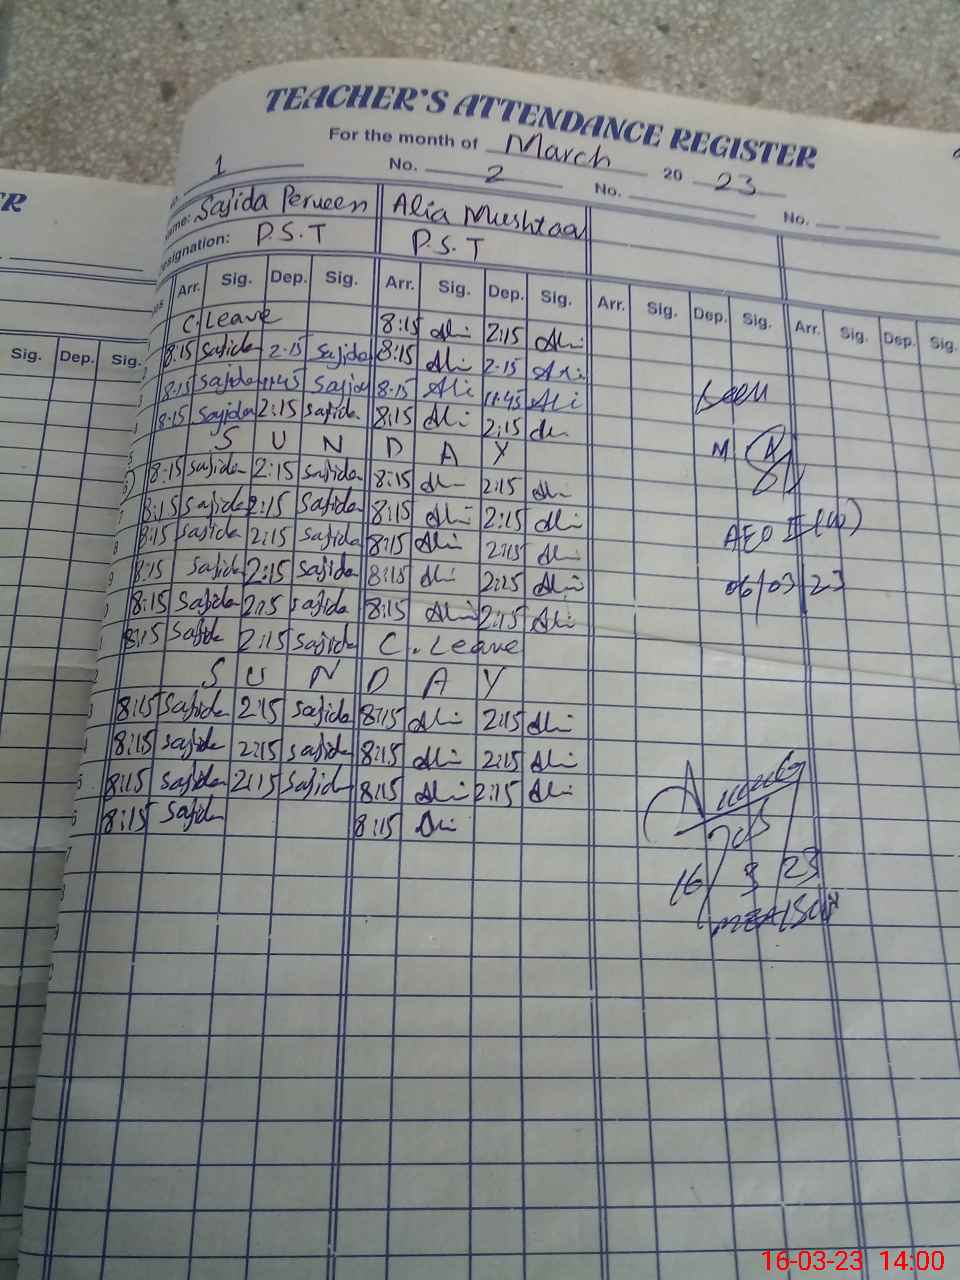 TEACHER'S ATTENDANCE REGISTER
For the month of March 2023
1 No. 2 No. No.
Sajida Perveen Alia Mushtaq
Designation: P.S.T P.S.T
ER
Sig. Dep. Sig.
Arr. Sig. Dep. Sig. Arr. Sig. Dep. Sig. Arr. Sig. Dep. Sig. Arr. Sig. Dep. Sig.
C.Leave 8:15 Ali 2:15 Ali
8:15 Sajida 2:15 Sajida 8:15 Ali 2:15 Ali
8:15 Sajida 11:45 Sajida 8:15 Ali 11:45 Ali
8:15 Sajida 2:15 Sajida 8:15 Ali 2:15 Ali
S U N D A Y
8:15 Sajida 2:15 Sajida 8:15 Ali 2:15 Ali
8:15 Sajida 2:15 Sajida 8:15 Ali 2:15 Ali
8:15 Sajida 2:15 Sajida 8:15 Ali 2:15 Ali
8:15 Sajida 2:15 Sajida 8:15 Ali 2:15 Ali
8:15 Sajida 2:15 Sajida 8:15 Ali 2:15 Ali
8:15 Sajida 2:15 Sajida C. Leave
S U N D A Y
8:15 Sajida 2:15 Sajida 8:15 Ali 2:15 Ali
8:15 Sajida 2:15 Sajida 8:15 Ali 2:15 Ali
8:15 Sajida 2:15 Sajida 8:15 Ali 2:15 Ali
8:15 Sajida 8:15 Ali
Seen
AEO
06/03/23
16/3/23
16-03-23 14:00